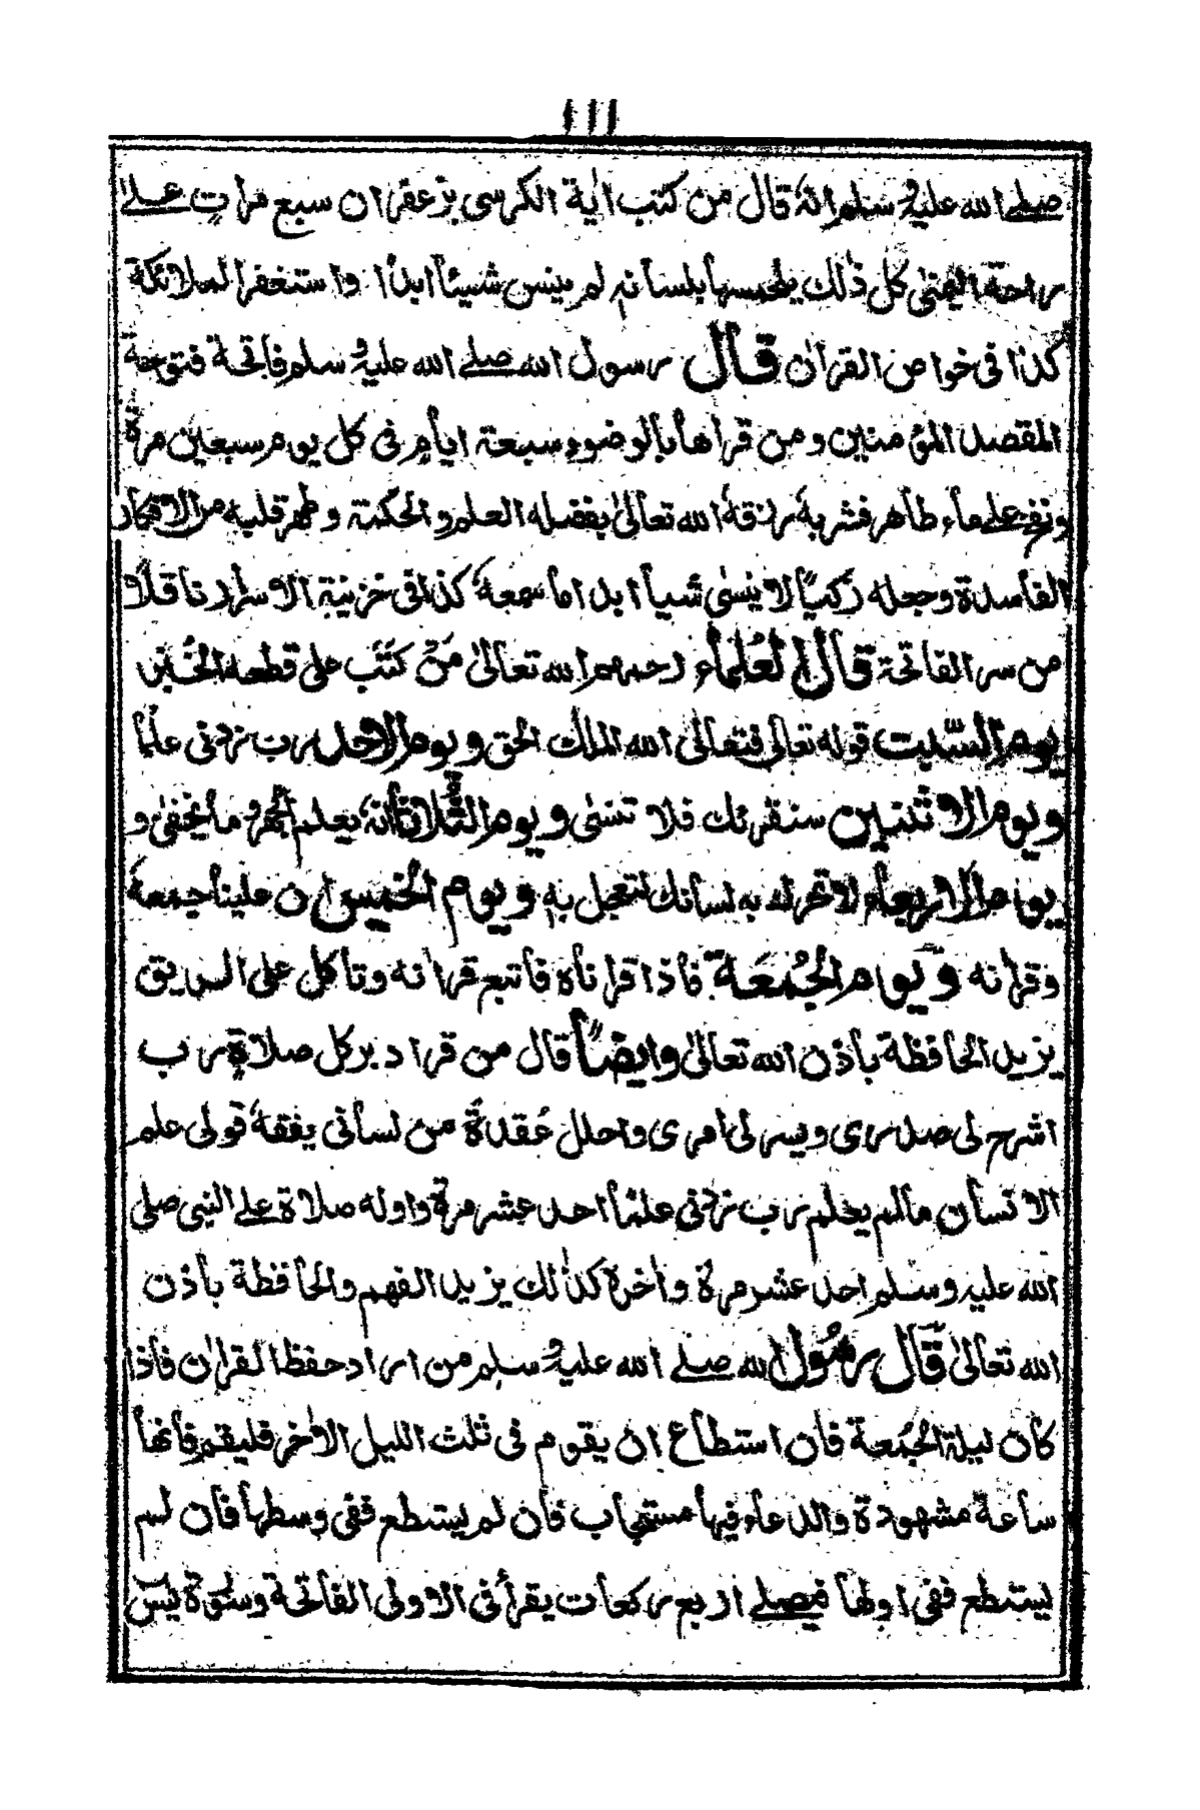 ااا
صلى الله عليه وسلم انه قال من كتب اية الكرسى بزعفران سبع مرات على
راحة اليمنى كل ذلك يلحسها بلسانه لم ينس شيئا ابدا واستغفر الملائكة
كذا فى خواص القرآن قال رسول الله صلى الله عليه وسلم فاتحة فتوحة
المقصد المؤمنين ومن قرأها بالوضوء سبعة ايام فى كل يوم سبعين مرة
ونفخ على ماء طاهر فشربه رزقه الله تعالى بفضله العلم والحكمة وطهر قلبه من الافكار
الفاسدة وجعله زكيا لا ينسى شيأ ابدا ما سمعه كذا فى خزنية الاسرار ناقلا
من سر الفاتحة قال العلماء رحمهم الله تعالى من كتب على قطعه الخبز
يوم السبت قوله تعالى فتعالى الله الملك الحق ويوم الاحد رب زدنى علما
ويوم الاثنين سنقرئك فلا تنسى ويوم الثلاثا انه يعلم الجهر وما يخفى و
يوم الاربعاء لا تحرك به لسانك لتعجل به ويوم الخميس ان علينا جمعه
وقرانه ويوم الجمعة فاذا قراناه فاتبع قرانه وتاكل على الريق
يزيد الحافظة باذن الله تعالى وايضا قال من قرا دبر كل صلاة رب
اشرح لى صدرى ويسر لى امرى واحلل عقدة من لسانى يفقه قولى علم
الانسان مالم يعلم رب زدنى علما احد عشر مرة واوله صلاة على النبى صلى
الله عليه وسلم احد عشر مرة واخره كذلك يزيد الفهم والحافظة باذن
الله تعالى قال رسول الله صلى الله عليه وسلم من اراد حفظ القران فاذا
كان ليلة الجمعة فان استطاع ان يقوم فى ثلث الليل الاخر فليقم فانها
ساعة مشهودة والدعاء فيها مستجاب فان لم يستطع ففى وسطها فان لم
يستطع ففى اولها فيصلى اربع ركعات يقرأ فى الاولى الفاتحة وسورة يس